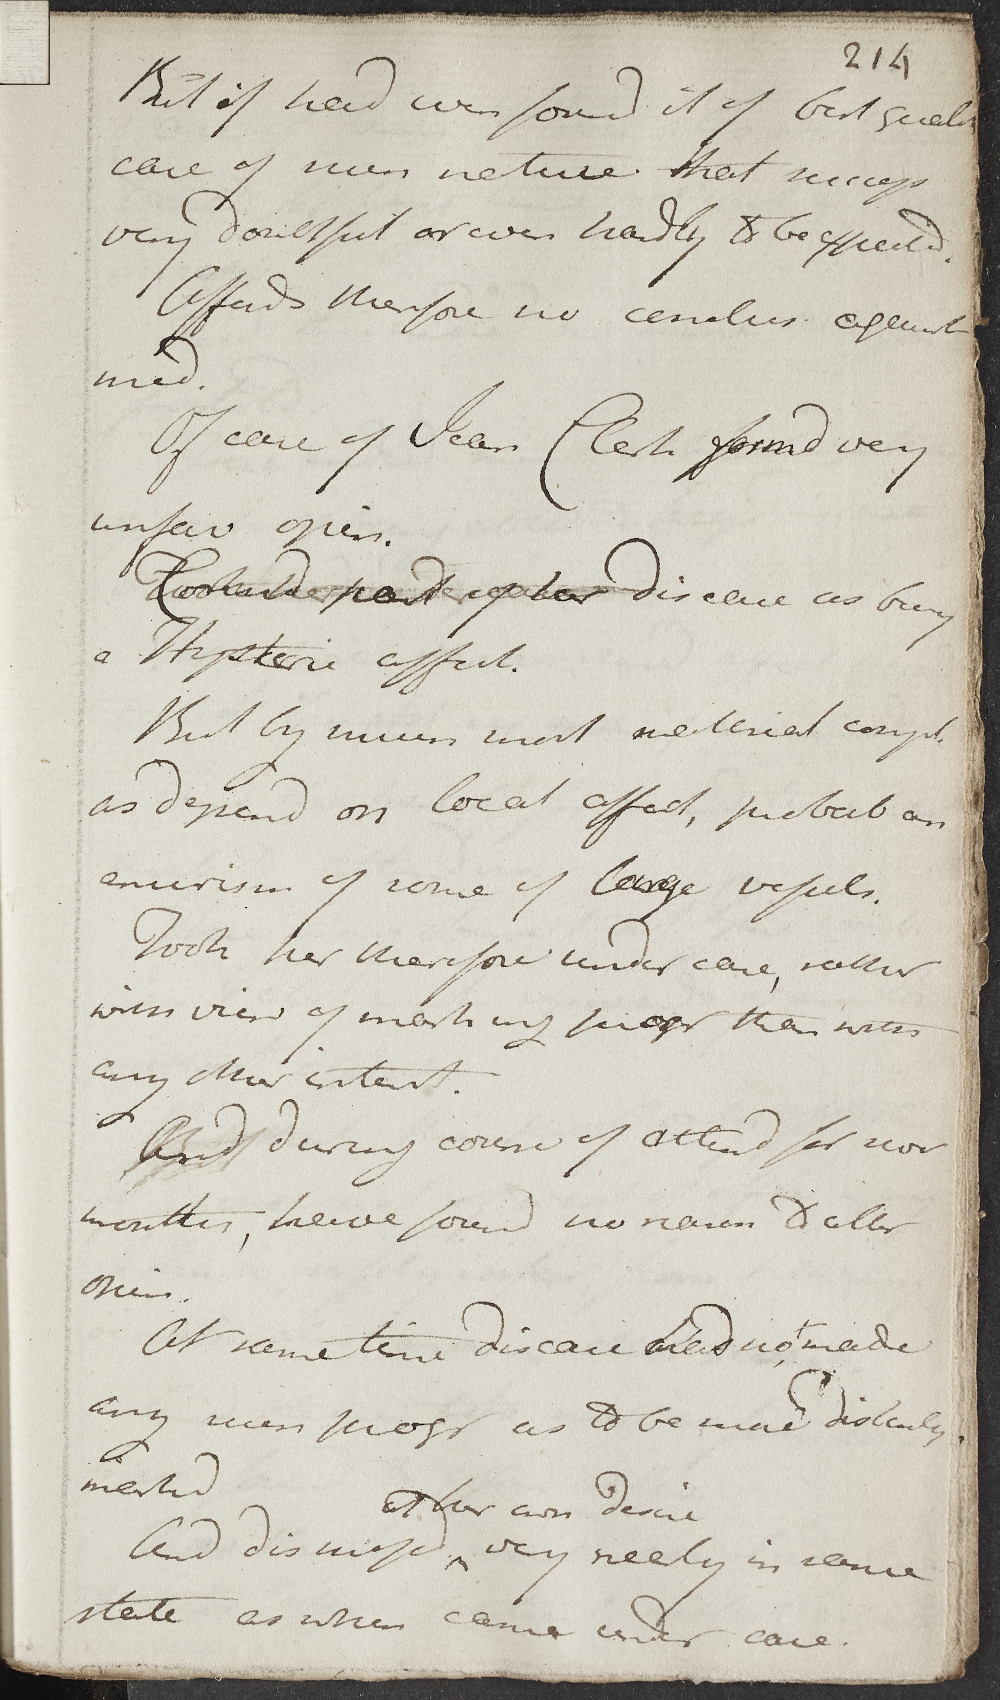 214
But if head even found it of best guals
case of such nature that success
very doubtful or even hardly to be expected.
Affords therefore no conclus against
med.
Of case of Jean Clerk formd very
unfav opin.
part of her disease as being
a Hysteric affect.
But by much most material compl.
as depend on local affect, probab an
aneurism of some of large vessels.
Took her therefore under care, rather
with view of marking progr than with
any other intent.
And during course of attend for now
months, have found no reason to alter
opin.
At same time disease had not made
any such progr as to be more distinctly
marked
at her own desire
And dismissd ^ very nearly in same
state as when came under care.